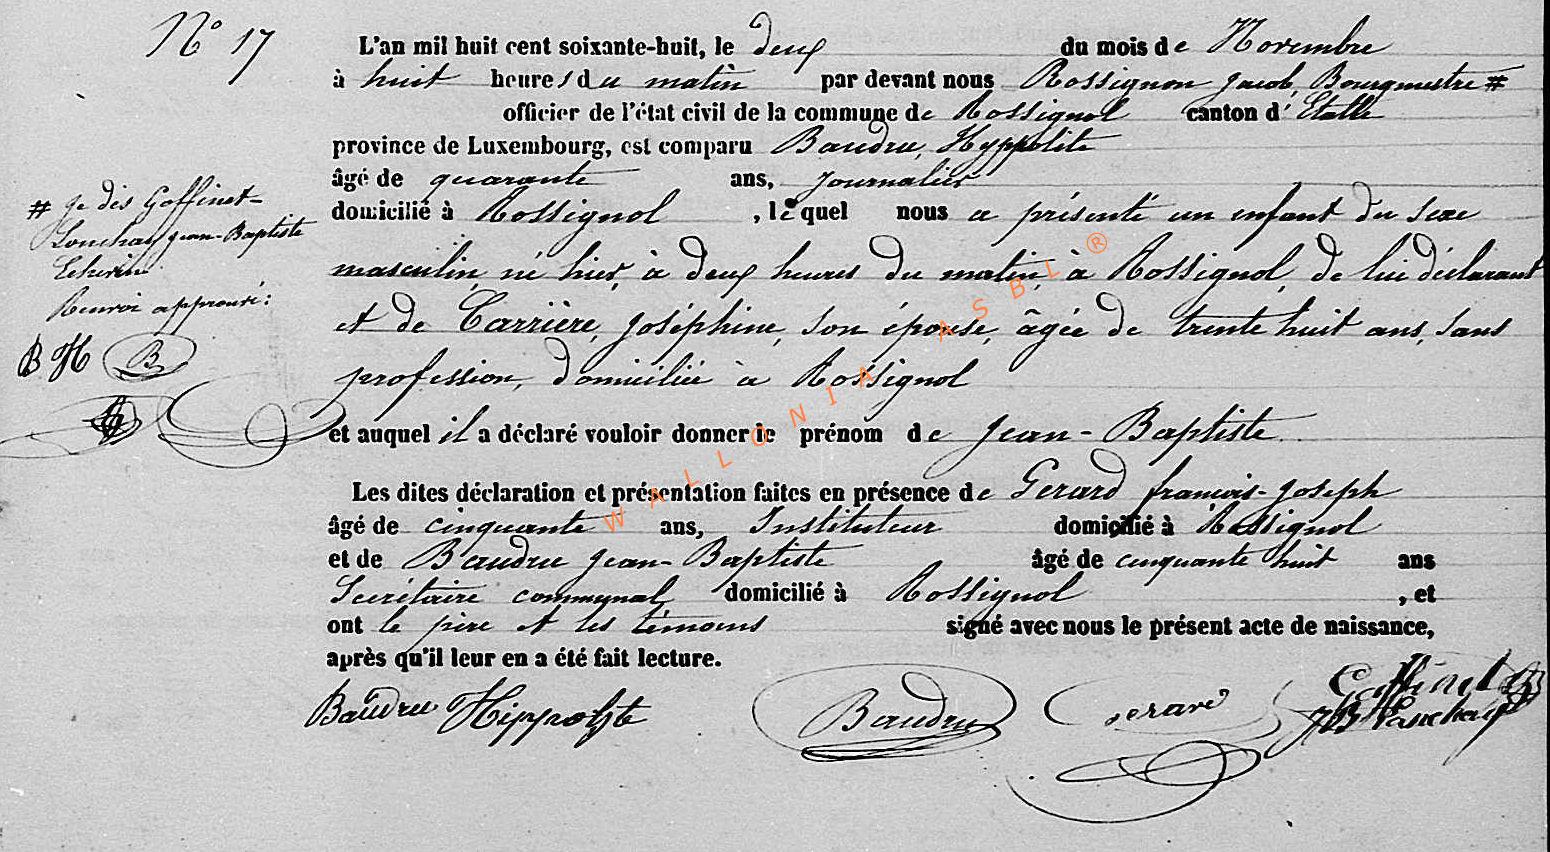 N° 17
L'an mil huit cent soixante-huit, le deux du mois de Novembre
à huit heures du matin par devant nous Rossignon Jacob, Bourgmestre #
officier de l'état civil de la commune de Rossignol canton d'Etalle
province de Luxembourg, est comparu Baudru, Hyppolite
âgé de quarante ans, Journalier
domicilié à Rossignol, lequel nous a présenté un enfant du sexe
masculin, né hier, à deux heures du matin, à Rossignol, de lui déclarant
et de Carrière, Joséphine, son épouse, âgée de trente huit ans, sans
profession, domiciliée à Rossignol
et auquel il a déclaré vouloir donner le prénom de Jean-Baptiste
Les dites déclaration et présentation faites en présence de Gerard françois-Joseph
âgé de cinquante ans, Instituteur domicilié à Rossignol
et de Baudru Jean-Baptiste âgé de cinquante huit ans
Secrétaire communal domicilié à Rossignol, et
ont le père et les témoins signé avec nous le présent acte de naissance,
après qu'il leur en a été fait lecture.
# Je dis Goffinet-
Louchard Jean-Baptiste
Echevin
Renvoi approuvé :
B H B
Baudru Hippolyte Baudru Gerard Goffinet
WALLONIA ASBL ®